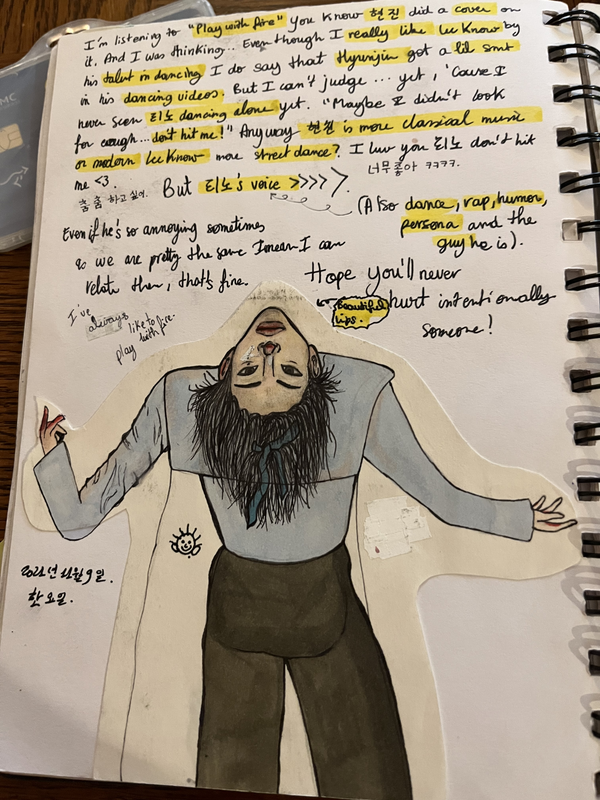 I'm listening to "Play with fire" you know 현진 did a cover on
it. And I was thinking... Even though I really like Lee Know by
his talent in dancing I do say that Hyunjin got a lil smt
in his dancing videos. But I can't judge ... yet, 'cause I
never seen 리노 dancing alone yet. "Maybe I didn't look
for enough... don't hit me!" Anyway 현진 is more classical music
or modern Lee Know more street dance? I luv you 리노 don't hit
me <3. 너무 좋아 ㅋㅋㅋㅋ.
춤 춤 하고 싶어.
But 리노's voice >>>>>.
(Also dance, rap, humor,
persona and the
guy he is).
Even if he's so annoying sometimes
as we are pretty the same I mean I can
relate then, that's fine.
Hope you'll never
hurt intentionally
someone!
Beautiful
lips.
I've
always
like to
play with fire.
2021년 11월 9일.
한요일.